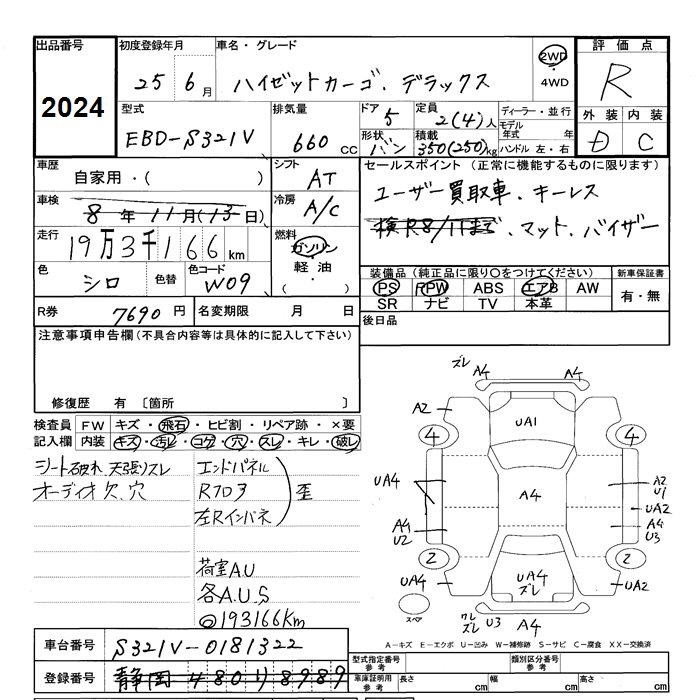 出品番号 初度登録年月 車名・グレード 2WD 評価点
2024 25年 6月 ハイゼットカーゴ・デラックス 4WD R
型式 排気量 ドア 定員 ディーラー・並行 外装 内装
EBD-S321V 660 CC 5 2(4)人 モデル年式 年 D C
形状 バン 積載 350(250)kg ハンドル 左・右
車歴 シフト セールスポイント (正常に機能するものに限ります)
自家用・( ) AT ユーザー買取車・キーレス
車検 8年11月(13日) 冷房 A/C 検R8/11まで、マット、バイザー
走行 19万3千166km 燃料 ガソリン 軽油・( )
色 シロ 色替 色コード W09
装備品 (純正品に限り○をつけてください) 新車保証書
PS PW ABS エアB AW 有・無
SR ナビ TV 本革
R券 7690円 名変期限 月 日 後日品
注意事項申告欄(不具合内容等は具体的に記入して下さい)
修復歴 有 〔箇所 〕
検査員記入欄 FW キズ・飛石・ヒビ割・リペア跡・×要
内装 キズ・汚レ・コゲ・穴・スレ・キレ・破レ
シート破れ 天張りスレ
オーディオ欠、穴
エンドパネル
Rフロア 歪
左Rインパネ
荷室AU
各A.U.S
◎193166Km
ズレ A4 A4
A2 UA1
4 4
UA4 A4 A2 U1
UA2
A4 U2 A4 U3
2 2
UA4 UA4 ズレ UA2
スペア ワレ ズレ U3 A4
A-キズ E-エクボ U-凹み W-補修跡 S-サビ C-腐食 XX-交換済
車台番号 S321V-0181322
登録番号 静岡 480 り 8989
型式指定番号 参考 類別区分番号 参考
車庫証明用 参考 長さ cm 幅 cm 高さ cm